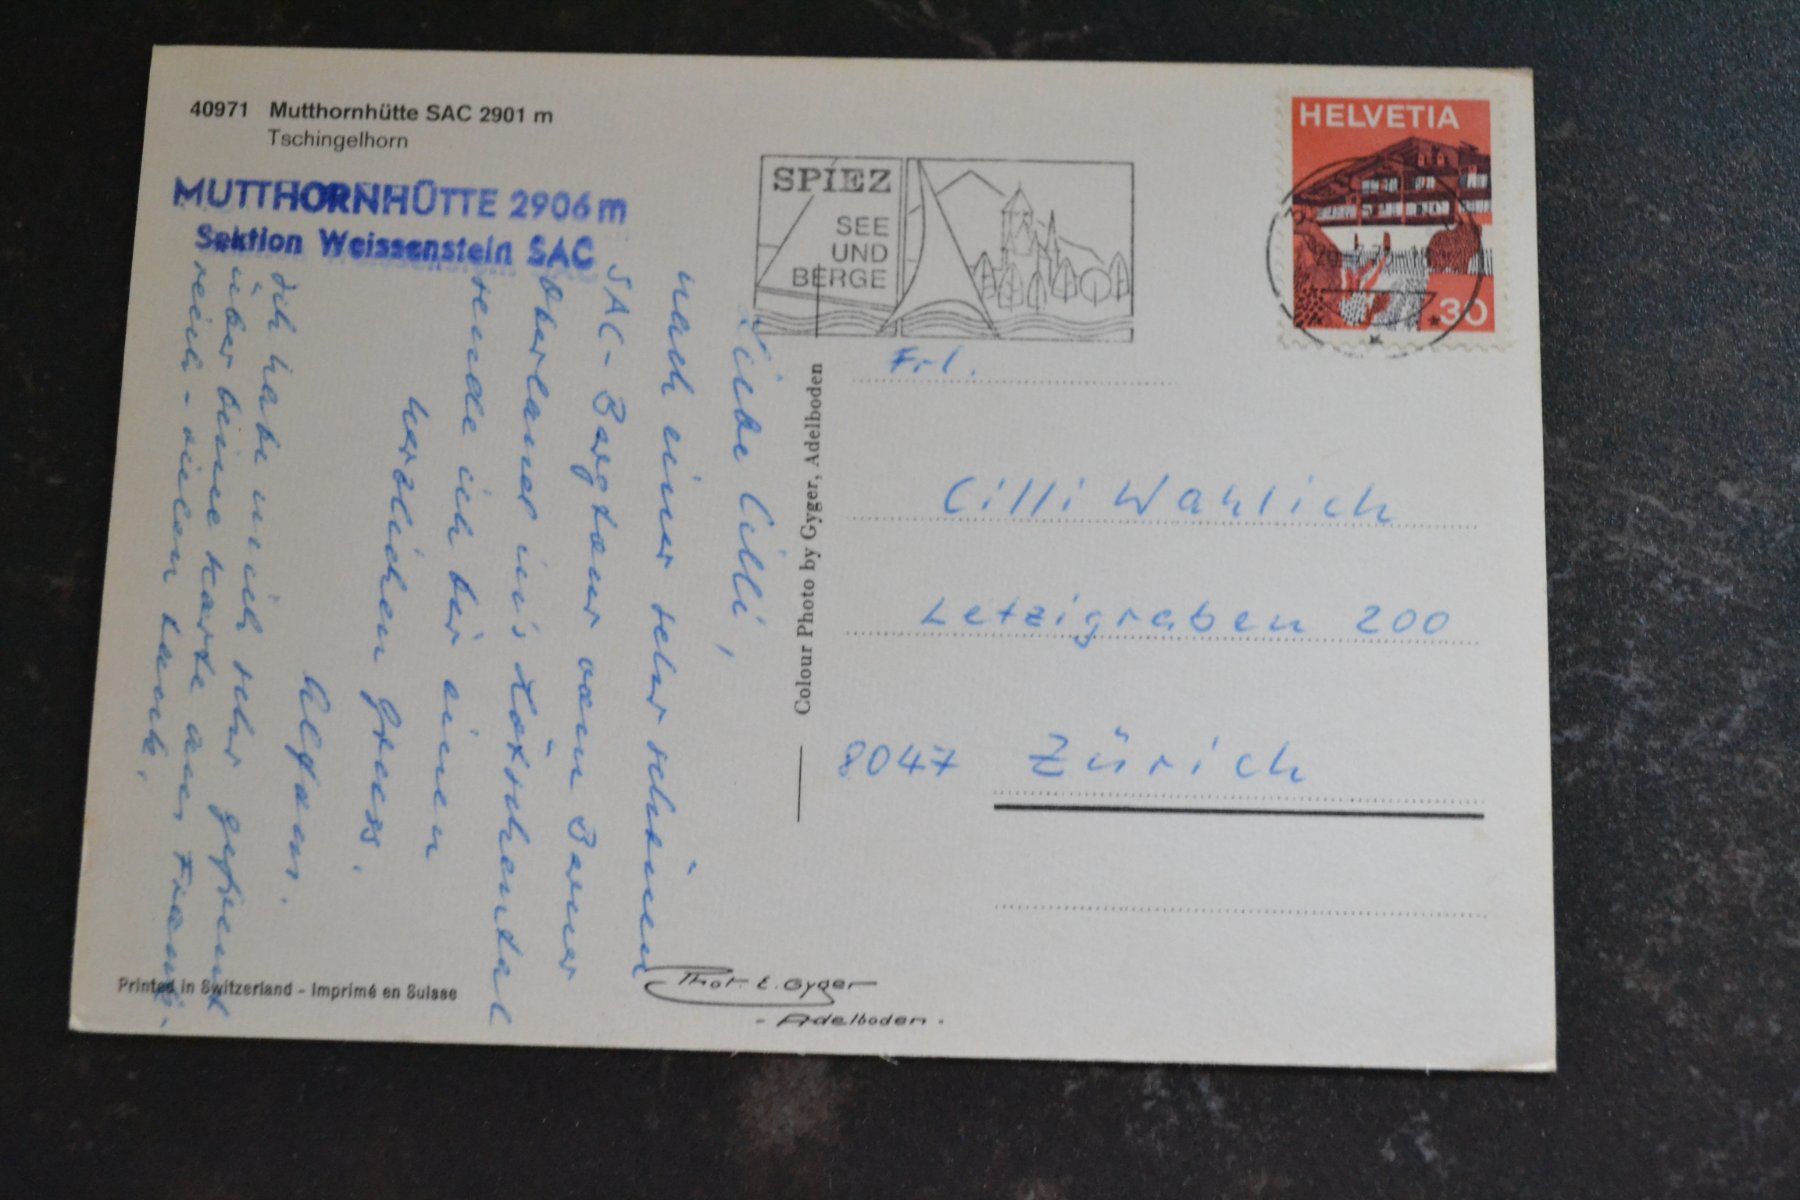 40971 Mutthornhütte SAC 2901 m
Tschingelhorn
MUTTHORNHÜTTE 2906 m
Sektion Weissenstein SAC
Liebe Cilli,
nach einer sehr schönen
SAC-Bergtour vom Berner
Oberland in's Lötschental
sende ich dir einen
herzlichen Gruss.
ich habe mich sehr gefreut
über deine Karte aus Frank-
reich - vielen Dank.
Printed in Switzerland - Imprimé en Suisse
Colour Photo by Gyger, Adelboden
Phot. E. Gyger
- Adelboden -
SPIEZ
SEE
UND
BERGE
HELVETIA
30
Frl.
Cilli Wahlich
Letzigraben 200
8047 Zürich